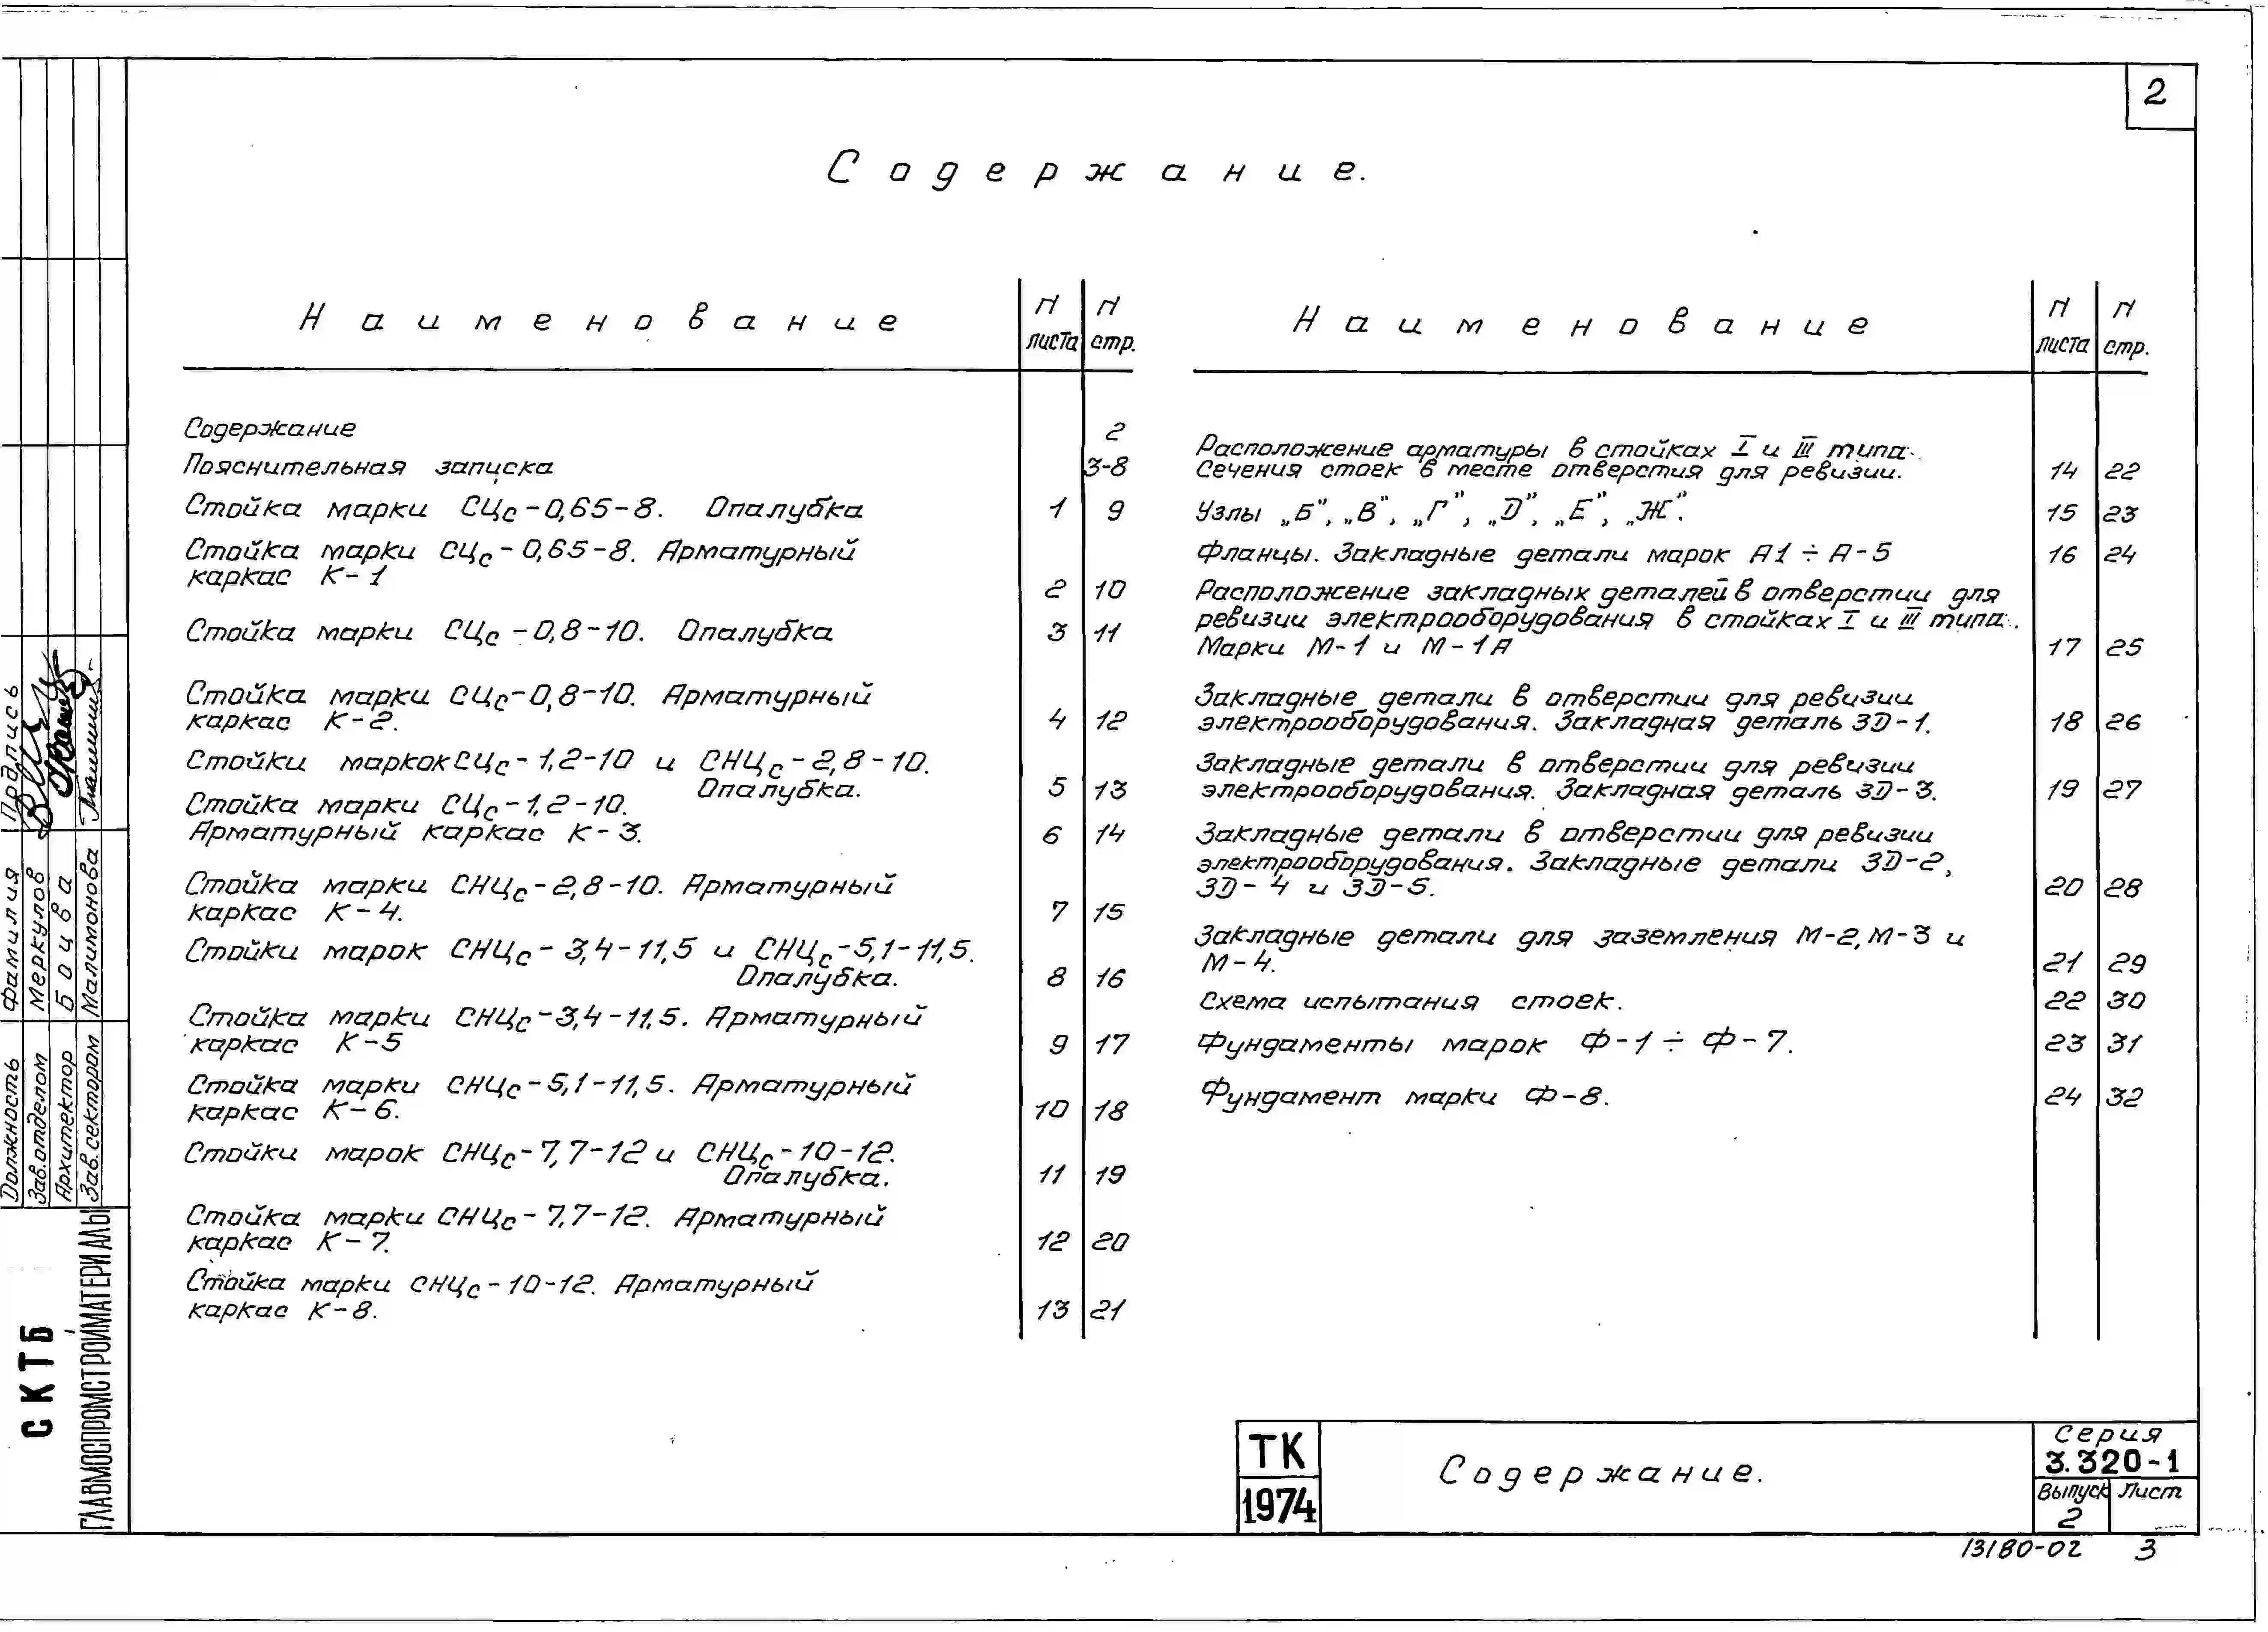 2
Содержание.
Наименование
N листа
N стр.
Содержание 2
Пояснительная записка 3-8
Стойка марки СЦс-0,65-8. Опалубка 1 9
Стойка марки СЦс-0,65-8. Арматурный
каркас К-1 2 10
Стойка марки СЦс-0,8-10. Опалубка 3 11
Стойка марки СЦс-0,8-10. Арматурный
каркас К-2. 4 12
Стойки маркок СЦс-1,2-10 и СНЦс-2,8-10.
Опалубка. 5 13
Стойка марки СЦс-1,2-10.
Арматурный каркас К-3. 6 14
Стойка марки СНЦс-2,8-10. Арматурный
каркас К-4. 7 15
Стойки марок СНЦс-3,4-11,5 и СНЦс-5,1-11,5.
Опалубка. 8 16
Стойка марки СНЦс-3,4-11,5. Арматурный
каркас К-5 9 17
Стойка марки СНЦс-5,1-11,5. Арматурный
каркас К-6. 10 18
Стойки марок СНЦс-7,7-12 и СНЦс-10-12.
Опалубка. 11 19
Стойка марки СНЦс-7,7-12. Арматурный
каркас К-7. 12 20
Стойка марки СНЦс-10-12. Арматурный
каркас К-8. 13 21
Наименование
N листа
N стр.
Расположение арматуры в стойках I и III типа.
Сечения стоек в месте отверстия для ревизии. 14 22
Узлы „Б", „В", „Г", „Д", „Е", „Ж". 15 23
Фланцы. Закладные детали марок А1 ÷ А-5 16 24
Расположение закладных деталей в отверстии для
ревизии электрооборудования в стойках I и III типа.
Марки М-1 и М-1А 17 25
Закладные детали в отверстии для ревизии
электрооборудования. Закладная деталь ЗД-1. 18 26
Закладные детали в отверстии для ревизии
электрооборудования. Закладная деталь ЗД-3. 19 27
Закладные детали в отверстии для ревизии
электрооборудования. Закладные детали ЗД-2,
ЗД-4 и ЗД-5. 20 28
Закладные детали для заземления М-2, М-3 и
М-4. 21 29
Схема испытания стоек. 22 30
Фундаменты марок Ф-1 ÷ Ф-7. 23 31
Фундамент марки Ф-8. 24 32
Должность Фамилия Подпись
Зав.отделом Меркулов
Архитектор Боцва
Зав.сектором Малимонова
СКТБ
ГЛАВМОСПРОМСТРОЙМАТЕРИАЛЫ
ТК
1974
Содержание.
Серия
3.320-1
Выпуск Лист
2
13180-02 3